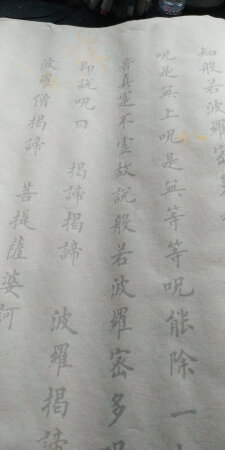 知般若波羅密多
呪是無上呪是無等等呪能除一
苦真實不虛故說般若波羅密多呪
即說呪曰 揭諦揭諦 波羅揭諦
波羅僧揭諦 菩提薩婆訶